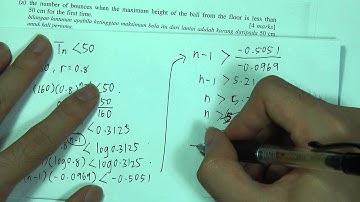 (a) the number of bounces when the maximum height of the ball from the floor is less than
50 cm for the first time. [4 marks]
bilangan lantunan apabila ketinggian maksimum bola itu dari lantai adalah kurang daripada 50 cm
untuk kali pertama.
Tn < 50
, r = 0.8
(160)(0.8) < 50
50
160
< 0.3125
n-1 < log 0.3125
(log 0.8) < log 0.3125
(n-1)(-0.0969) < -0.5051
n-1 > -0.5051
-0.0969
n-1 > 5.21
n > 
n >